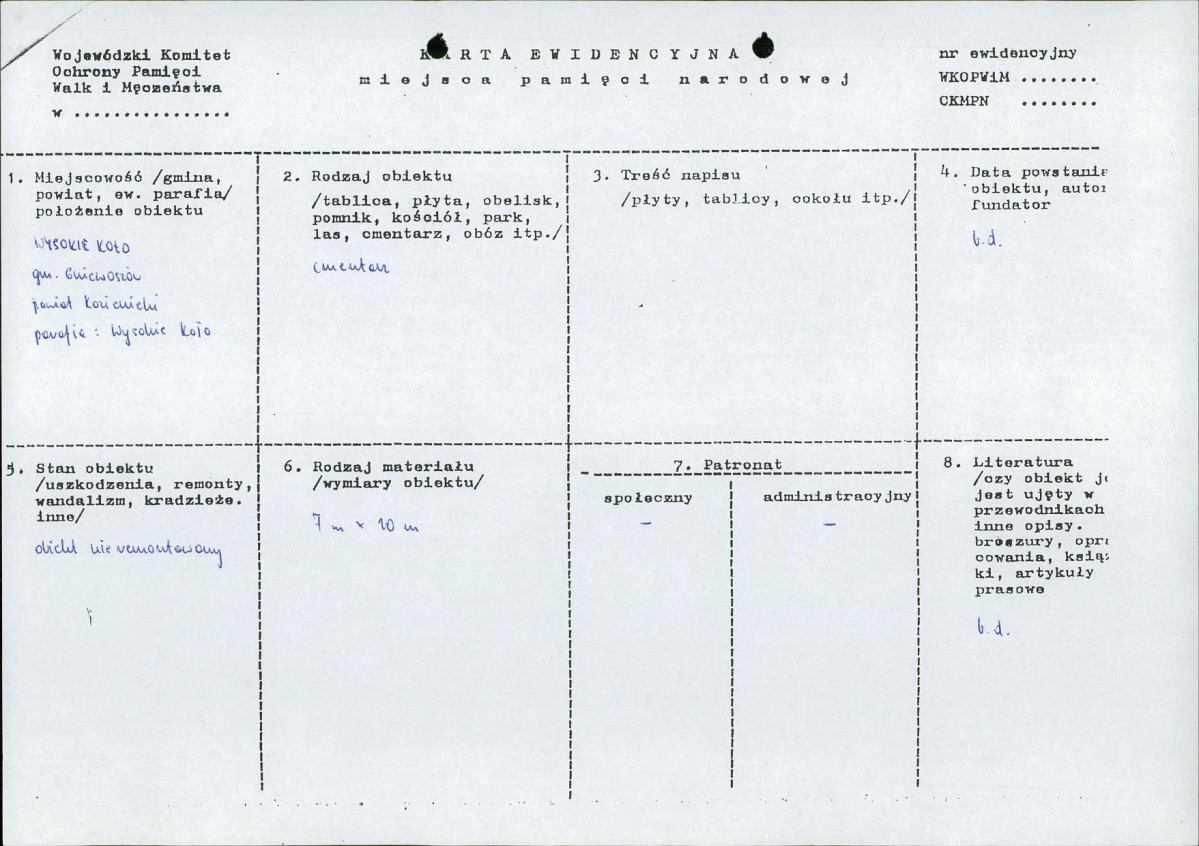 Wojewódzki Komitet
Ochrony Pamięci
Walk i Męczeństwa
w ................
KARTA EWIDENCYJNA
miejsca pamięci narodowej
nr ewidencyjny
WKOPWiM ........
CKMPN ........
1. Miejscowość /gmina,
powiat, ew. parafia/
położenie obiektu
WYSOKIE KOŁO
gm. Gniewoszów
powiat Kozienicki
parafia : Wysokie Koło
2. Rodzaj obiektu
/tablica, płyta, obelisk,
pomnik, kościół, park,
las, cmentarz, obóz itp./
cmentarz
3. Treść napisu
/płyty, tablicy, cokołu itp./
4. Data powstania
obiektu, autor
fundator
b.d.
5. Stan obiektu
/uszkodzenia, remonty,
wandalizm, kradzieże.
inne/
obiekt nie remontowany
6. Rodzaj materiału
/wymiary obiektu/
7 m x 10 m
7. Patronat
społeczny
–
administracyjny
–
8. Literatura
/czy obiekt je
jest ujęty w
przewodnikach
inne opisy.
broszury, opra
cowania, książ
ki, artykuły
prasowe
b.d.